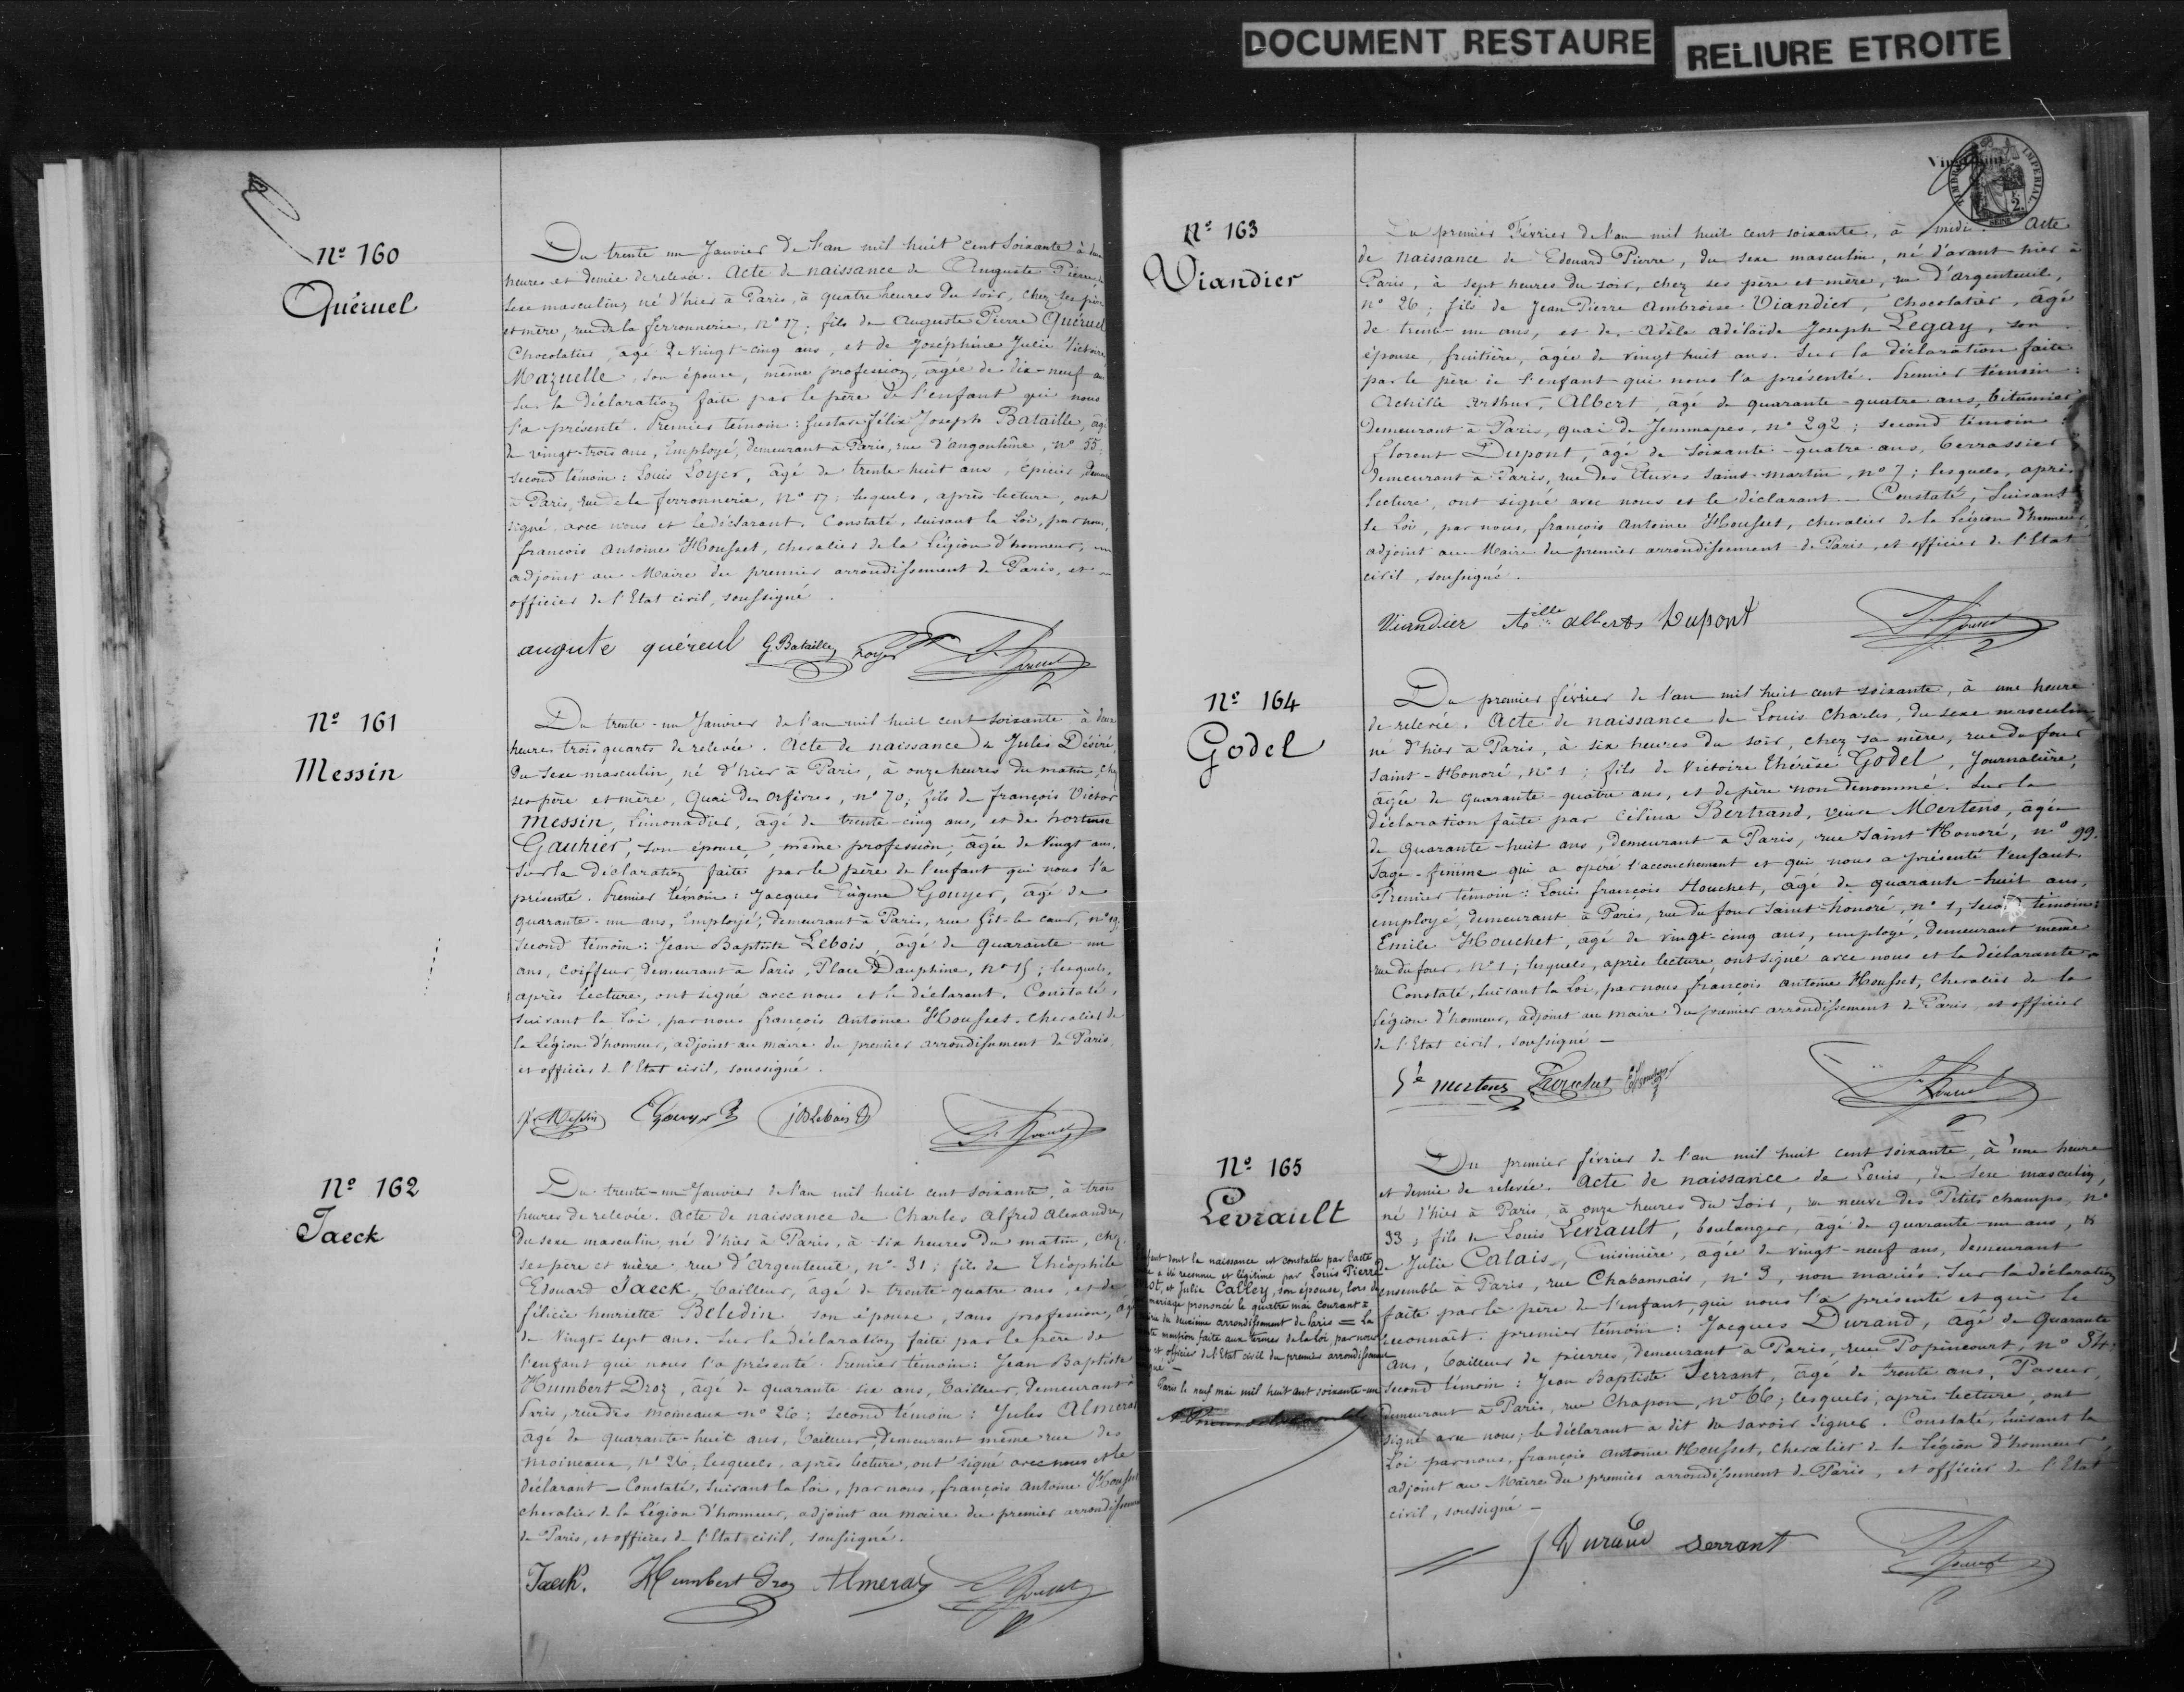 DOCUMENT RESTAURE
RELIURE ETROITE
Nº 160
Quéruel
Du trente un Janvier de l'an mil huit cent soixante à
heures et demie de relevée. Acte de naissance de Auguste Pierre,
sexe masculin, né d'hier à Paris, à quatre heures du soir, chez ses père
et mère, rue de la ferronnerie, Nº 17; fils de Auguste Pierre Quéruel
Chocolatier, âgé de vingt-cinq ans, et de Joséphine Julie Victoire
Mazuelle, son épouse, même profession, âgée de dix-neuf
Sur la déclaration faite par le père de l'enfant qui nous
l'a présenté. Premier témoin: Gustave Félix Joseph Bataille, âgé
de vingt-trois ans, Employé, demeurant à Paris, rue d'angoulême, Nº 55;
second témoin: Louis Loyer, âgé de trente-huit ans, épicier,
à Paris, rue de la ferronnerie, Nº 17; lesquels, après lecture, ont
signé avec nous et le déclarant. Constaté, suivant la Loi, par nous,
françois Antoine Housset, chevalier de la Légion d'honneur,
adjoint au Maire du premier arrondissement de Paris, et
officier de l'Etat civil, soussigné.
auguste quéreul G. Bataille Loyer
Nº 161
Messin
Du trente-un Janvier de l'an mil huit cent soixante à deux
heures trois quarts de relevée. Acte de naissance de Jules Désiré,
du sexe masculin, né d'hier à Paris, à onze heures du matin, chez
ses père et mère, Quai des orfèvres, nº 70; fils de françois Victor
Messin, Limonadier, âgé de trente-cinq ans, et de hortense
Gauhier, son épouse, même profession, âgée de Vingt ans.
Sur la déclaration faite par le père de l'enfant qui nous l'a
présenté. Premier témoin: Jacques Eugène Gouyer, âgé de
quarante-un ans, Employé, demeurant à Paris, rue Gît-le-cœur, nº 19,
second témoin: Jean Baptiste Lebois, âgé de quarante-un
ans, coiffeur demeurant à Paris, Place Dauphine, nº 15; lesquels,
après lecture, ont signé avec nous et le déclarant. Constaté,
suivant la Loi, par nous françois Antoine Housset, chevalier de
la Légion d'honneur, adjoint au maire du premier arrondissement de Paris,
et officier de l'Etat civil, soussigné.
Messin EGouyer JBLebois
Nº 162
Jaeck
Du trente-un Janvier de l'an mil huit cent soixante, à trois
heures de relevée. Acte de naissance de Charles Alfred Alexandre,
du sexe masculin, né d'hier à Paris, à six heures du matin, chez
ses père et mère, rue d'Argenteuil, nº 31; fils de Théophile
Edouard Jaeck, tailleur, âgé de trente-quatre ans, et de
félicie henriette Beledin, son épouse, sans profession,
de Vingt-sept ans. Sur la déclaration faite par le père de
l'enfant qui nous l'a présenté. Premier témoin: Jean Baptiste
Humbert Droz, âgé de quarante six ans, tailleur, demeurant à
Paris, rue des moineaux nº 26; second témoin: Jules Almeras
âgé de quarante-huit ans, tailleur, demeurant même rue des
moineaux, nº 26; lesquels, après lecture, ont signé avec nous et le
déclarant — Constaté, suivant la Loi, par nous, françois Antoine Housset
chevalier de la Légion d'honneur, adjoint au maire du premier arrondissement
de Paris, et officier de l'Etat civil, soussigné.
Jaeck. Humbert Droz Almeras
TIMBRE IMPERIAL
2.
Nº 163
Viandier
Du premier Février de l'an mil huit cent soixante, à midi. Acte
de naissance de Edouard Pierre, du sexe masculin, né d'avant hier à
Paris, à sept heures du soir, chez ses père et mère, rue d'argenteuil,
nº 26; fils de Jean Pierre Ambroise Viandier, chocolatier, âgé
de trente-un ans, et de Adèle adélaïde Joseph Legay, son
épouse, fruitière, âgée de vingt huit ans. Sur la déclaration faite
par le père de l'enfant qui nous l'a présenté. Premier témoin:
Achille Arthur, Albert, âgé de quarante-quatre ans, bitumier
demeurant à Paris, quai de Jemmapes, nº 292; second témoin:
Florent Dupont, âgé de soixante-quatre ans, terrassier
demeurant à Paris, rue des Etuves Saint-martin, nº 7; lesquels, après
lecture, ont signé avec nous et le déclarant — Constaté, suivant
la Loi, par nous, françois Antoine Housset, chevalier de la Légion d'honneur,
adjoint au Maire du premier arrondissement de Paris, et officier de l'Etat
civil, soussigné.
Viandier Aille albert Dupont
Nº 164
Godel
Du premier février de l'an mil huit cent soixante, à une heure
de relevée. Acte de naissance de Louis Charles, du sexe masculin,
né d'hier à Paris, à six heures du soir, chez sa mère, rue du four
Saint-Honoré, Nº 1; fils de Victoire Thérèse Godel, Journalière,
âgée de quarante-quatre ans, et de père non dénommé. Sur la
déclaration faite par Célina Bertrand, veuve Mertens, âgée
de quarante-huit ans, demeurant à Paris, rue Saint Honoré, nº 99.
Sage-femme qui a opéré l'accouchement et qui nous a présenté l'enfant.
Premier témoin: Louis françois Houchet, âgé de quarante-huit ans,
employé, demeurant à Paris, rue du four Saint-honoré, nº 1, second témoin:
Emile Houchet, âgé de vingt-cinq ans, employé, demeurant même
rue du four, nº 1; lesquels, après lecture, ont signé avec nous et la déclarante
Constaté, suivant la Loi, par nous françois Antoine Housset, Chevalier de la
Légion d'honneur, adjoint au maire du premier arrondissement de Paris et officier
de l'Etat civil, soussigné —
Ve mertens Houchet
Nº 165
Levrault
Du premier février de l'an mil huit cent soixante, à une heure
et demie de relevée. Acte de naissance de Louis, du sexe masculin,
né d'hier à Paris, à onze heures du Soir, rue neuve des Petits champs, nº
33; fils de Louis Levrault, boulanger, âgé de quarante-un ans, &
de Julie Calais, Cuisinière, âgée de vingt-neuf ans, demeurant
ensemble à Paris, rue Chabannais, nº 3, non mariés. Sur la déclaration
faite par le père de l'enfant, qui nous l'a présenté et qui le
reconnaît. premier témoin: Jacques Durand, âgé de quarante
ans, tailleur de pierres, demeurant à Paris, rue Popincourt, nº 34;
second témoin: Jean Baptiste Serrant, âgé de trente ans, Paveur,
demeurant à Paris, rue Chapon, nº 66; lesquels, après lecture, ont
signé avec nous; le déclarant a dit ne savoir signer. Constaté, suivant la
Loi par nous, françois Antoine Housset, chevalier de la Légion d'honneur
adjoint au Maire du premier arrondissement de Paris, et officier de l'Etat
civil, soussigné —
J Durand serrant
dont la naissance est constatée par l'acte
a été reconnu et légitimé par Louis Pierre
et Julie Calley, son épouse, lors de
mariage prononcé le quatre mai courant à
du deuxième arrondissement de Paris = La
mention faite aux termes de la loi par nous
et officier de l'Etat civil du premier arrondissement
Paris le neuf mai mil huit cent soixante-un